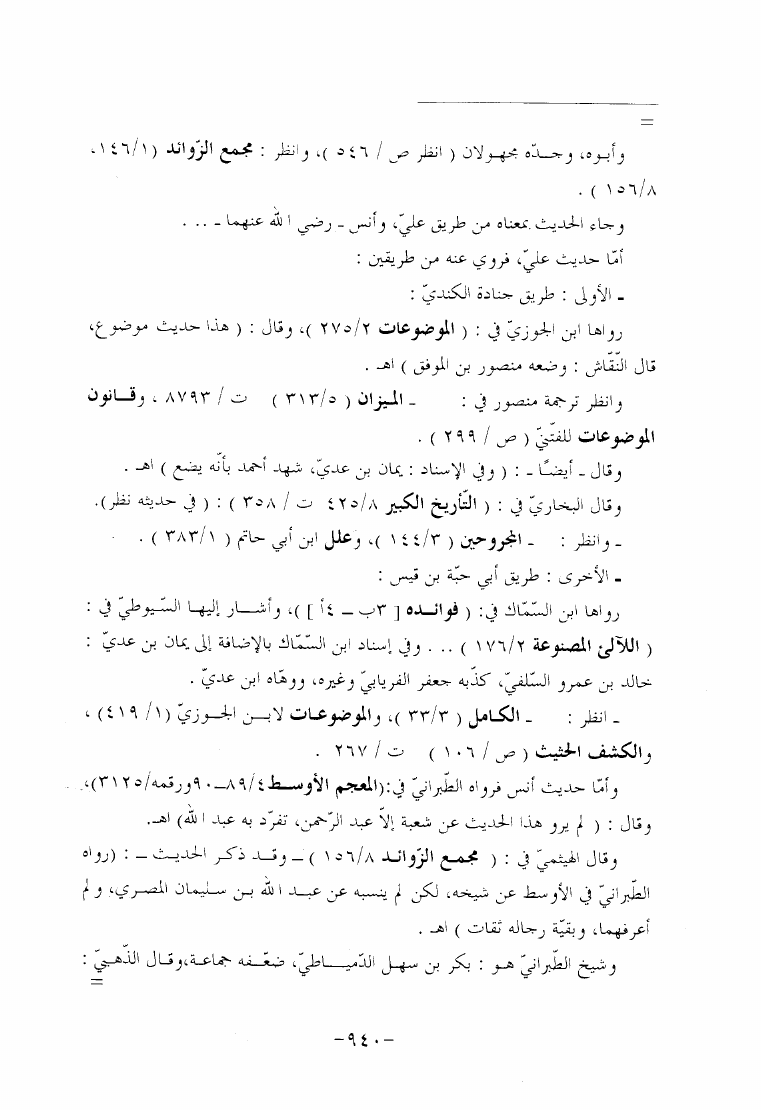 =
وأبوه، وجدّه مجهولان ( انظر ص / ٥٤٦ )، وانظر : مجمع الزّوائد (١٤٦/١،
١٥٦/٨ ) .
وجاء الحديث بمعناه من طريق عليّ، وأنس - رضي الله عنهما - ...
أمّا حديث عليّ، فروي عنه من طريقين :
- الأولى : طريق جنادة الكنديّ :
رواها ابن الجوزيّ في : ( الموضوعات ٢٧٥/٢ )، وقال : ( هذا حديث موضوع،
قال النّقّاش : وضعه منصور بن الموفق ) اهـ .
وانظر ترجمة منصور في : - الميزان ( ٣١٣/٥ ) ت / ٨٧٩٣ ، وقانون
الموضوعات للفتّنيّ ( ص / ٢٩٩ ) .
وقال - أيضًا - : ( وفي الإسناد : يمان بن عديّ، شهد أحمد بأنّه يضع ) اهـ .
وقال البخاريّ في : ( التّأريخ الكبير ٤٢٥/٨ ت / ٣٥٨ ) : ( في حديثه نظر).
- وانظر : - المجروحين ( ١٤٤/٣ )، وعلل ابن أبي حاتم ( ٣٨٣/١ ) .
- الأخرى : طريق أبي حبّة بن قيس :
رواها ابن السّمّاك في: ( فوائده [ ٣ب - ٤أ ])، وأشار إليها السّيوطيّ في :
( اللآلئ المصنوعة ١٧٦/٢ ) ... وفي إسناد ابن السّمّاك بالإضافة إلى يمان بن عديّ :
خالد بن عمرو السّلفيّ، كذّبه جعفر الفريابيّ وغيره، ووهّاه ابن عديّ .
- انظر : - الكامل ( ٣٣/٣ )، والموضوعات لابن الجوزيّ (١/ ٤١٩) ،
والكشف الحثيث ( ص / ١٠٦ ) ت / ٢٦٧ .
وأمّا حديث أنس فرواه الطّبرانيّ في:(المعجم الأوسط٨٩/٤-٩٠ورقمه/٣١٢٥)،
وقال : ( لم يرو هذا الحديث عن شعبة إلاّ عبد الرّحمن، تفرّد به عبد الله) اهـ.
وقال الهيثميّ في : ( مجمع الزّوائد ١٥٦/٨ ) - وقد ذكر الحديث - : (رواه
الطّبرانيّ في الأوسط عن شيخه، لكن لم ينسبه عن عبد الله بن سليمان المصري، ولم
أعرفهما، وبقيّة رجاله ثقات ) اهـ .
وشيخ الطّبرانيّ هو : بكر بن سهل الدّمياطيّ، ضعّفه جماعة،وقال الذّهبيّ :
=
-٩٤٠-